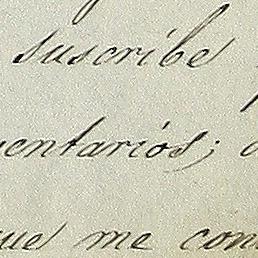 suscribe
entarios;
ue me con